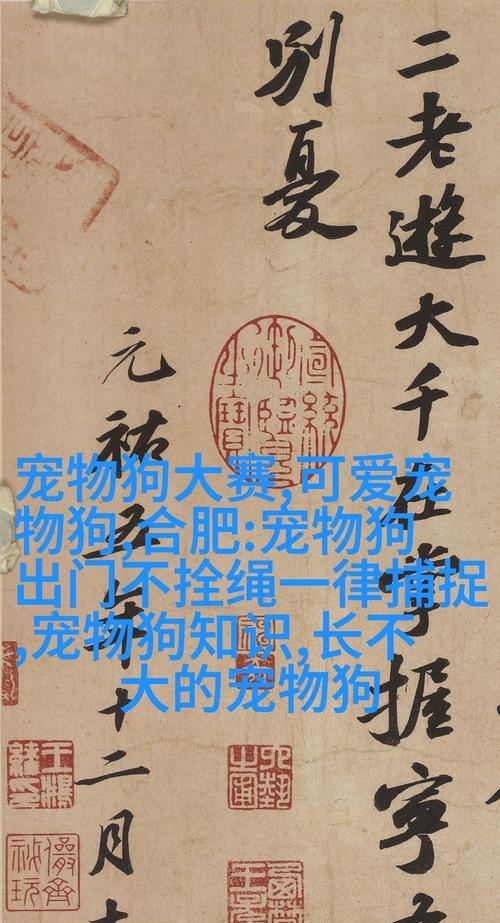 二老遊大千在掌握寧
別憂
元祐五年十二月
宠物狗大赛,可爱宠
物狗,合肥:宠物狗
出门不拴绳一律捕捉
,宠物狗知识,长不
大的宠物狗